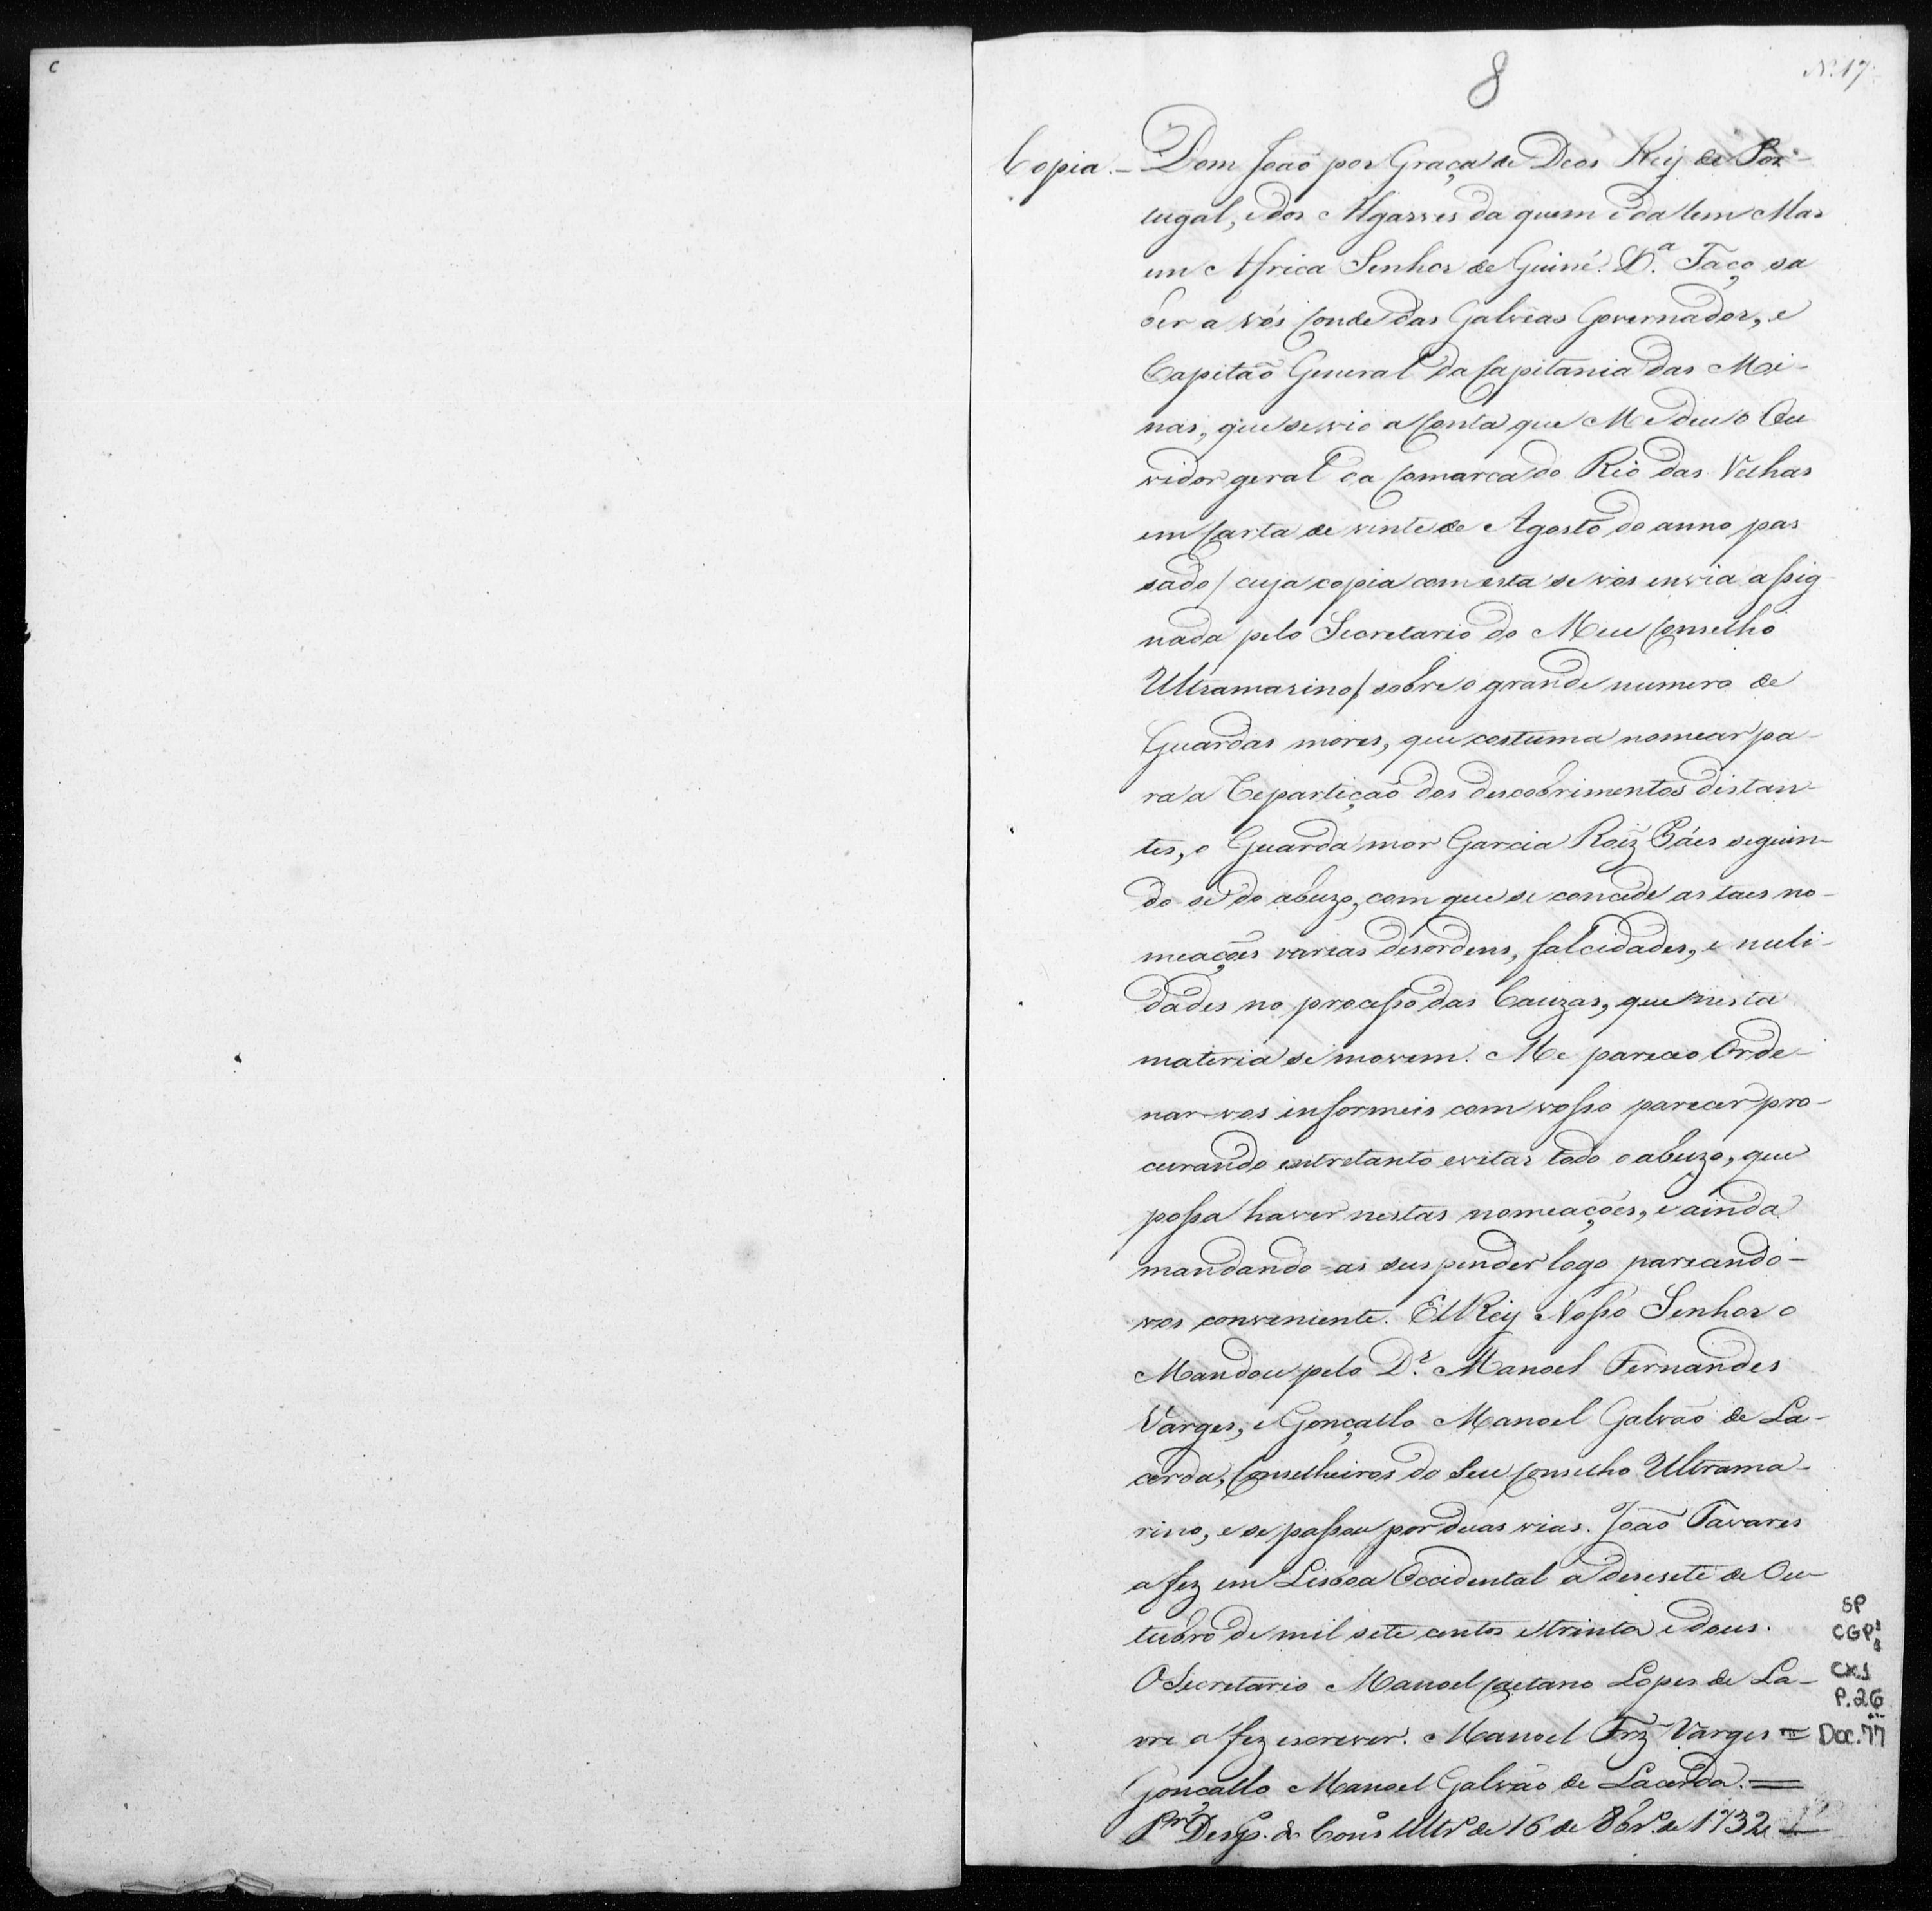 8
Nº 17
Copia. — Dom João por Graça de Deos Rey de Por-
tugal, e dos Algarves da quem e da lem Mar
em Africa Senhor de Guiné. &.ª Faço sa
ber a vós Conde das Galveas Governador, e
Capitaõ General da Capitania das Mi-
nas, que se vio a Conta que Me deu o Ou
vidor geral da Comarca do Rio das Velhas
em Carta de vinte de Agosto do anno pas
sado / cuja copia com esta se vos envia assig
nada pelo Secretario do Meu Conselho
Ultramarino / sobre o grande numero de
Guardas mores, que costuma nomear pa-
ra a Repartição dos descobrimentos distan-
tes, o Guarda mor Garcia Roiz Páes seguin-
do se do abuzo, com que se concede as taes no-
meações varias desordens, falcidades, e nuli-
dades no processo das Cauzas, que nesta
materia se movem. Me pareceo Orde-
nar-vos informeis com vosso parecer pro-
curando entretanto evitar todo o abuzo, que
possa haver nestas nomeações, e ainda
mandando-as suspender logo parecendo-
vos conveniente. El Rey Nosso Senhor o
Mandou pelo D.r Manoel Fernandes
Varges, e Gonçallo Manoel Galvão de La-
cerda, Conselheiros do Seu Conselho Ultrama-
rino, e se passou por duas vias. João Tavares
a fez em Lisboa Occidental a desesete de Ou-
tubro de mil sete centos e trinta e dous.
O Secretario Manoel Caetano Lopes de La-
vre a fez escrever. Manoel Frz Varges =
Goncallo Manoel Galvão de Lacerda. =
Pr Desp.º do Cons.º Ultr.º de 16 de 8br.º de 1732
SP
CGP
CX.1
P.26
Doc. 77